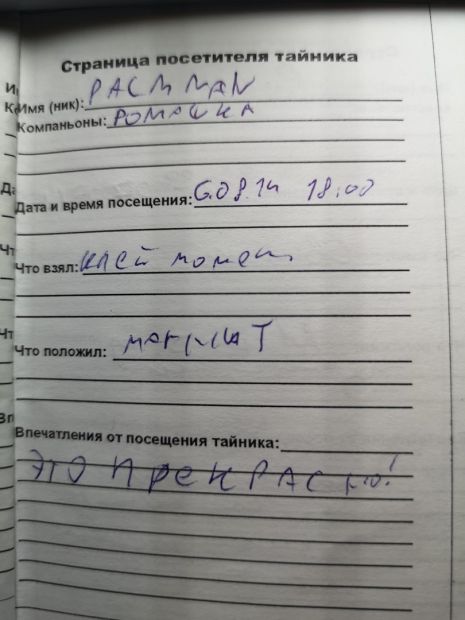 Страница посетителя тайника
Имя (ник): PACMMAN
Компаньоны: РОМАШКА
Дата и время посещения: 6.08.14 18:00
Что взял: клей момент
Что положил: магнит
Впечатления от посещения тайника:
ЭТО ПРЕКРАСНО!